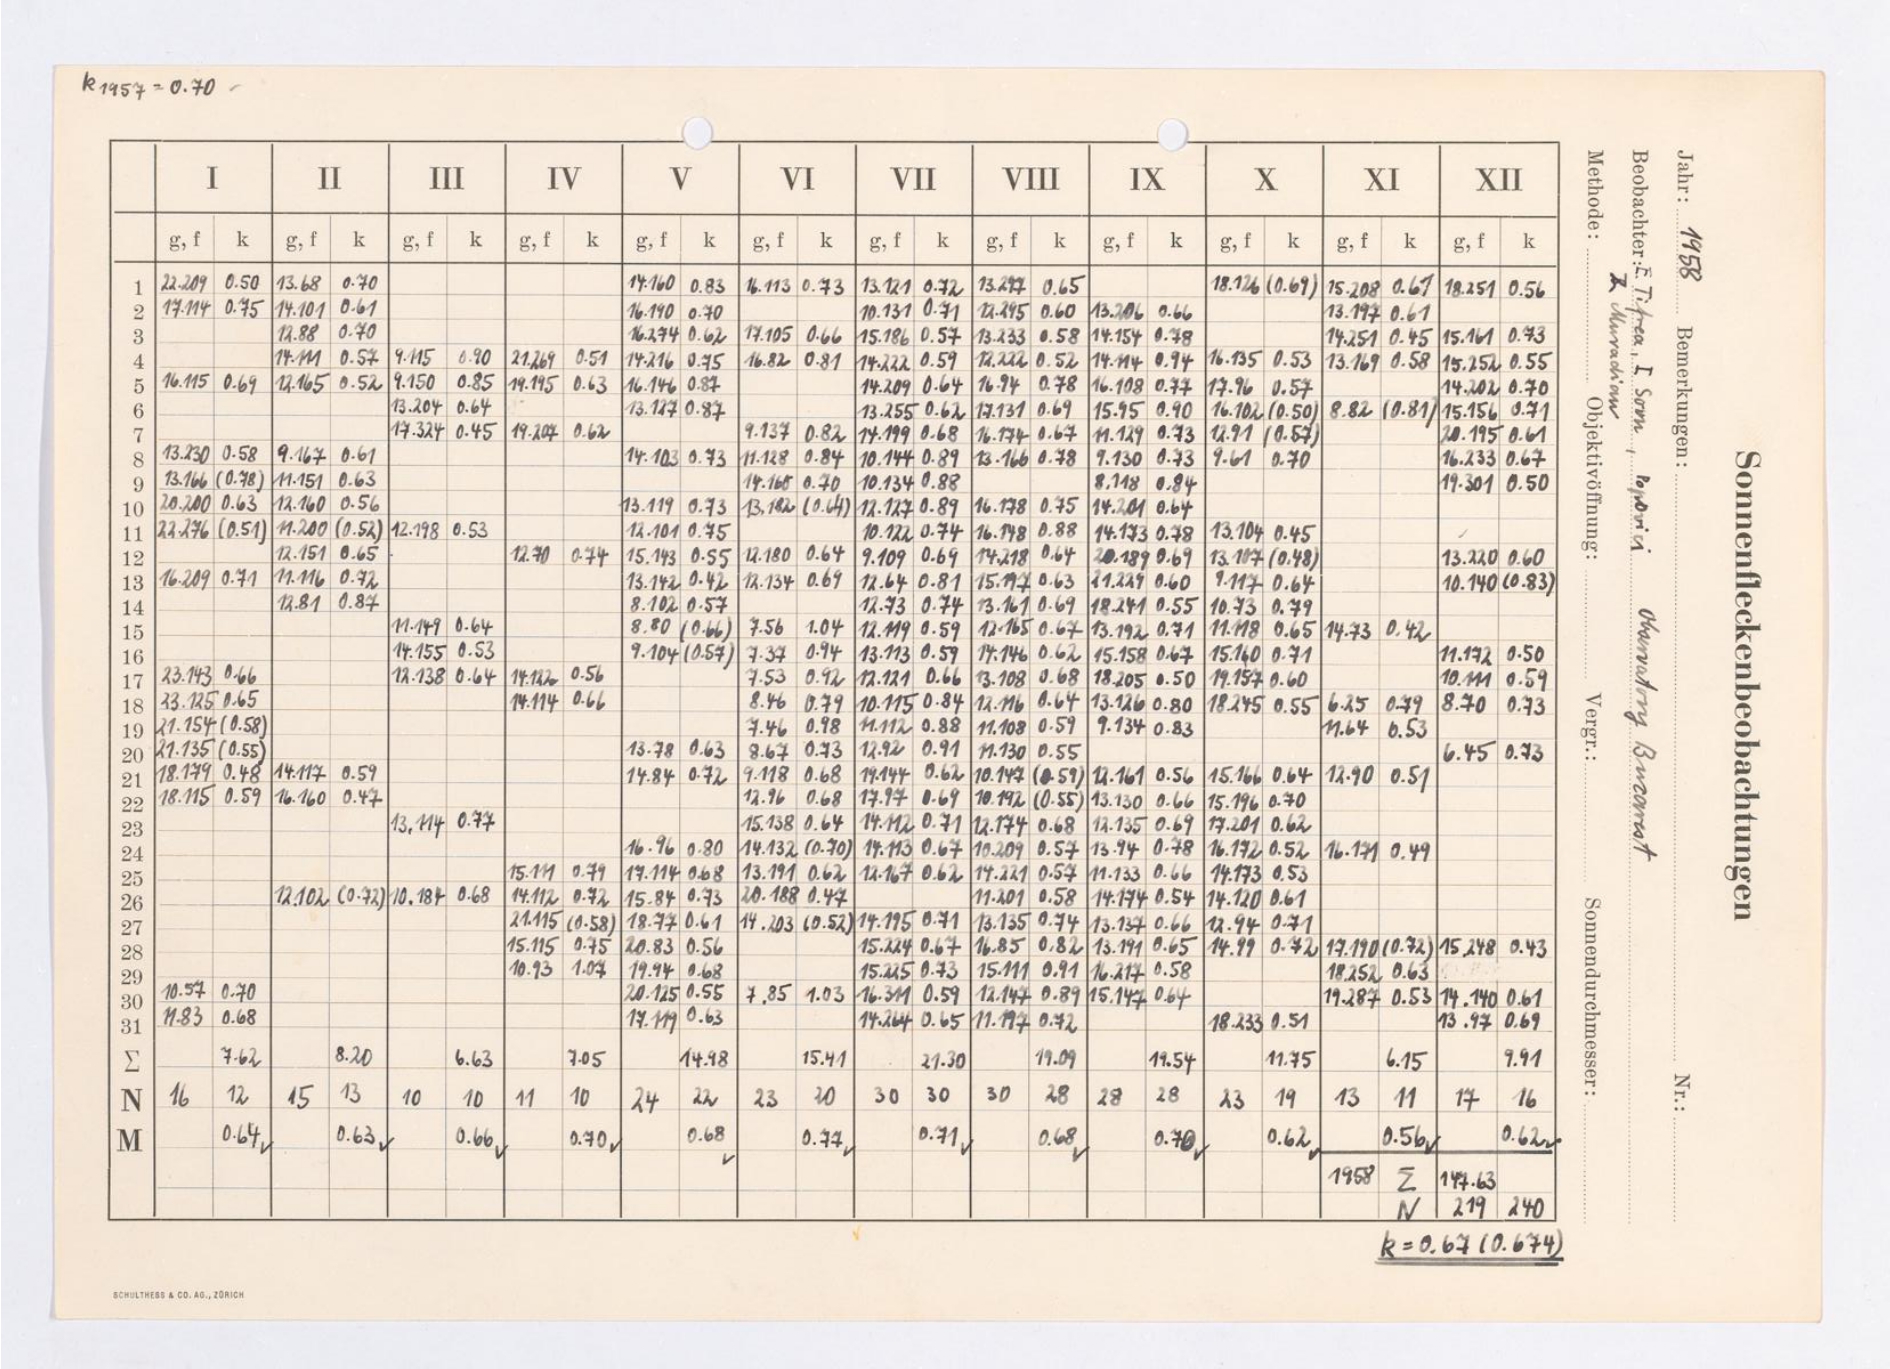 k 1957 = 0.70
I II III IV V VI VII VIII IX X XI XII
g, f k g, f k g, f k g, f k g, f k g, f k g, f k g, f k g, f k g, f k g, f k g, f k
1 22.209 0.50 13.68 0.70 14.160 0.83 16.113 0.73 13.121 0.72 13.247 0.65 18.126 (0.69) 15.208 0.67 18.251 0.56
2 17.114 0.75 14.101 0.61 16.190 0.70 10.131 0.71 12.295 0.60 13.206 0.66 13.197 0.61
3 12.88 0.70 16.274 0.62 17.105 0.66 15.186 0.57 13.233 0.58 14.154 0.78 14.251 0.45 15.161 0.73
4 14.111 0.57 9.115 0.90 21.269 0.51 14.216 0.75 16.82 0.81 14.222 0.59 12.222 0.52 14.114 0.94 16.135 0.53 13.169 0.58 15.252 0.55
5 16.115 0.69 12.165 0.52 9.150 0.85 19.195 0.63 16.146 0.87 14.209 0.64 16.94 0.78 16.108 0.77 17.96 0.57 14.202 0.70
6 13.204 0.64 13.127 0.87 13.255 0.62 17.131 0.69 15.95 0.90 16.102 (0.50) 8.82 (0.81) 15.156 0.71
7 17.324 0.45 19.207 0.62 9.137 0.82 14.199 0.68 16.174 0.67 11.129 0.73 12.91 (0.57) 20.195 0.61
8 13.230 0.58 9.167 0.61 14.103 0.73 11.128 0.84 10.144 0.89 13.166 0.78 9.130 0.73 9.61 0.70 16.233 0.67
9 13.166 (0.78) 11.151 0.63 14.168 0.70 10.134 0.88 8.118 0.84 19.301 0.50
10 20.200 0.63 12.160 0.56 13.119 0.73 13.182 (0.64) 12.127 0.89 16.178 0.75 14.201 0.64
11 22.276 (0.51) 11.200 (0.52) 12.198 0.53 12.101 0.75 10.122 0.74 16.148 0.88 14.173 0.78 13.104 0.45
12 12.151 0.65 12.70 0.74 15.143 0.55 12.180 0.64 9.109 0.69 14.218 0.64 20.189 0.69 13.107 (0.48) 13.220 0.60
13 16.209 0.71 11.116 0.72 13.142 0.42 12.134 0.69 12.64 0.81 15.197 0.63 21.229 0.60 9.117 0.64 10.140 (0.83)
14 12.81 0.87 8.102 0.57 12.73 0.74 13.161 0.69 18.241 0.55 10.73 0.79
15 11.149 0.64 8.80 (0.66) 7.56 1.04 12.119 0.59 12.165 0.67 13.192 0.71 11.118 0.65 14.73 0.42
16 14.155 0.53 9.104 (0.57) 7.37 0.94 13.113 0.59 14.146 0.62 15.158 0.67 15.160 0.71 11.172 0.50
17 23.143 0.66 12.138 0.64 14.122 0.56 7.53 0.92 12.121 0.66 13.108 0.68 18.205 0.50 19.157 0.60 10.111 0.59
18 23.125 0.65 14.114 0.66 8.46 0.79 10.115 0.84 12.116 0.64 13.126 0.80 18.245 0.55 6.25 0.79 8.70 0.73
19 21.154 (0.58) 7.46 0.98 11.112 0.88 11.108 0.59 9.134 0.83 11.64 0.53
20 21.135 (0.55) 13.78 0.63 8.67 0.73 12.92 0.91 11.130 0.55 6.45 0.73
21 18.179 0.48 14.117 0.59 14.84 0.72 9.118 0.68 19.144 0.62 10.147 (0.59) 12.161 0.56 15.166 0.64 12.90 0.51
22 18.115 0.59 16.160 0.47 12.96 0.68 17.97 0.69 10.192 (0.55) 13.130 0.66 15.196 0.70
23 13.114 0.77 15.138 0.64 14.112 0.71 12.174 0.68 12.135 0.69 17.201 0.62
24 16.96 0.80 14.132 (0.70) 14.113 0.67 10.209 0.57 13.94 0.78 16.172 0.52 16.171 0.49
25 15.111 0.79 17.114 0.68 13.191 0.62 12.167 0.62 14.221 0.57 11.133 0.66 14.173 0.53
26 12.102 (0.72) 10.184 0.68 14.112 0.72 15.84 0.73 20.188 0.47 11.201 0.58 14.174 0.54 14.120 0.61
27 21.115 (0.58) 18.77 0.61 14.203 (0.52) 14.195 0.71 13.135 0.74 13.137 0.66 12.94 0.71
28 15.115 0.75 20.83 0.56 15.224 0.67 16.85 0.82 13.191 0.65 14.99 0.72 17.190 (0.72) 15.248 0.43
29 10.93 1.07 19.94 0.68 15.225 0.73 15.111 0.91 16.217 0.58 18.252 0.63
30 10.57 0.70 20.125 0.55 7.85 1.03 16.311 0.59 12.147 0.89 15.147 0.64 19.287 0.53 14.140 0.61
31 11.83 0.68 17.119 0.63 14.264 0.65 11.197 0.72 18.233 0.51 13.97 0.69
Σ 7.62 8.20 6.63 7.05 14.98 15.41 21.30 19.09 19.54 11.75 6.15 9.91
N 16 12 15 13 10 10 11 10 24 22 23 20 30 30 30 28 28 28 23 19 13 11 17 16
M 0.64 0.63 0.66 0.70 0.68 0.77 0.71 0.68 0.70 0.62 0.56 0.62
1958 Σ 147.63
N 219 240
k = 0.67 (0.674)
SCHULTHESS & CO. AG., ZÜRICH
Sonnenfleckenbeobachtungen
Jahr: 1958 Bemerkungen: Nr.:
Beobachter: E. Tifrea, I Som, Popovici Observatory Bucarest
Z Muradian
Methode: Objektivöffnung: Vergr.: Sonnendurchmesser: